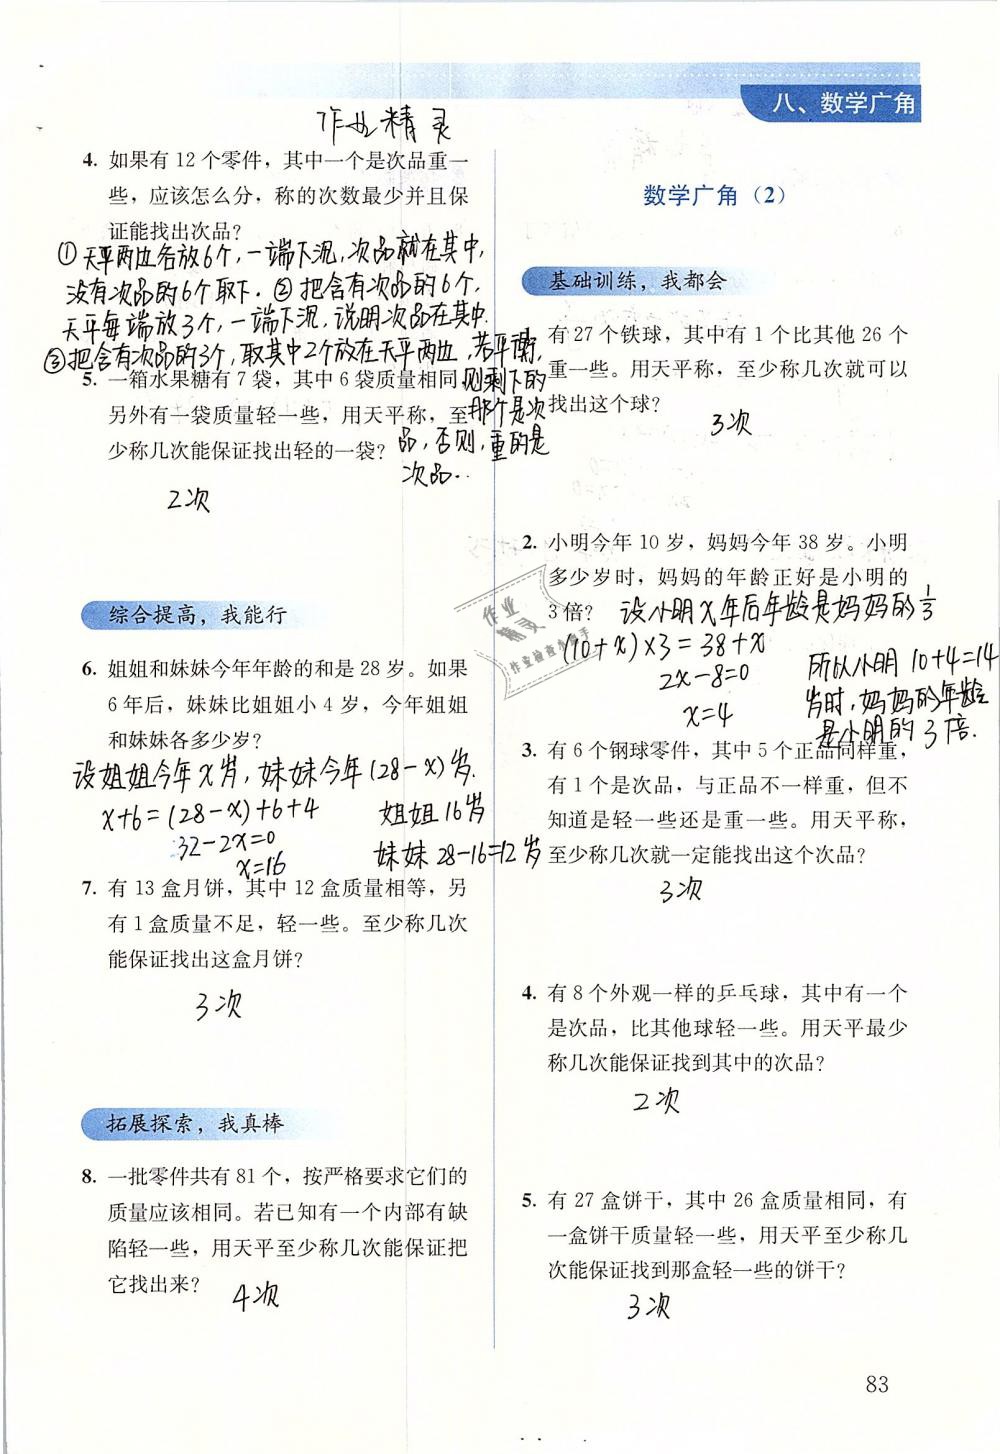 八、数学广角
作业精灵
4. 如果有12个零件，其中一个是次品重一
些，应该怎么分，称的次数最少并且保
证能找出次品？
①天平两边各放6个，一端下沉，次品就在其中，
没有次品的6个取下．②把含有次品的6个，
天平每端放3个，一端下沉，说明次品在其中．
③把含有次品的3个，取其中2个放在天平两边，若平衡，
则剩下的
那个是次
品，否则，重的是
次品．．
5. 一箱水果糖有7袋，其中6袋质量相同，
另外有一袋质量轻一些，用天平称，至
少称几次能保证找出轻的一袋？
2次
综合提高，我能行
6. 姐姐和妹妹今年年龄的和是28岁。如果
6年后，妹妹比姐姐小4岁，今年姐姐
和妹妹各多少岁？
设姐姐今年x岁，妹妹今年(28－x)岁．
x+6=(28－x)+6+4
32－2x=0
x=16
姐姐16岁
妹妹28－16=12岁
7. 有13盒月饼，其中12盒质量相等，另
有1盒质量不足，轻一些。至少称几次
能保证找出这盒月饼？
3次
拓展探索，我真棒
8. 一批零件共有81个，按严格要求它们的
质量应该相同。若已知有一个内部有缺
陷轻一些，用天平至少称几次能保证把
它找出来？
4次
数学广角（2）
基础训练，我都会
有27个铁球，其中有1个比其他26个
重一些。用天平称，至少称几次就可以
找出这个球？
3次
2. 小明今年10岁，妈妈今年38岁。小明
多少岁时，妈妈的年龄正好是小明的
3倍？
设小明x年后年龄是妈妈的1/3
(10+x)×3=38+x
2x－8=0
x=4
所以小明10+4=14
岁时，妈妈的年龄
是小明的3倍．
3. 有6个钢球零件，其中5个正品同样重，
有1个是次品，与正品不一样重，但不
知道是轻一些还是重一些。用天平称，
至少称几次就一定能找出这个次品？
3次
4. 有8个外观一样的乒乓球，其中有一个
是次品，比其他球轻一些。用天平最少
称几次能保证找到其中的次品？
2次
5. 有27盒饼干，其中26盒质量相同，有
一盒饼干质量轻一些，用天平至少称几
次能保证找到那盒轻一些的饼干？
3次
作业
精灵
83